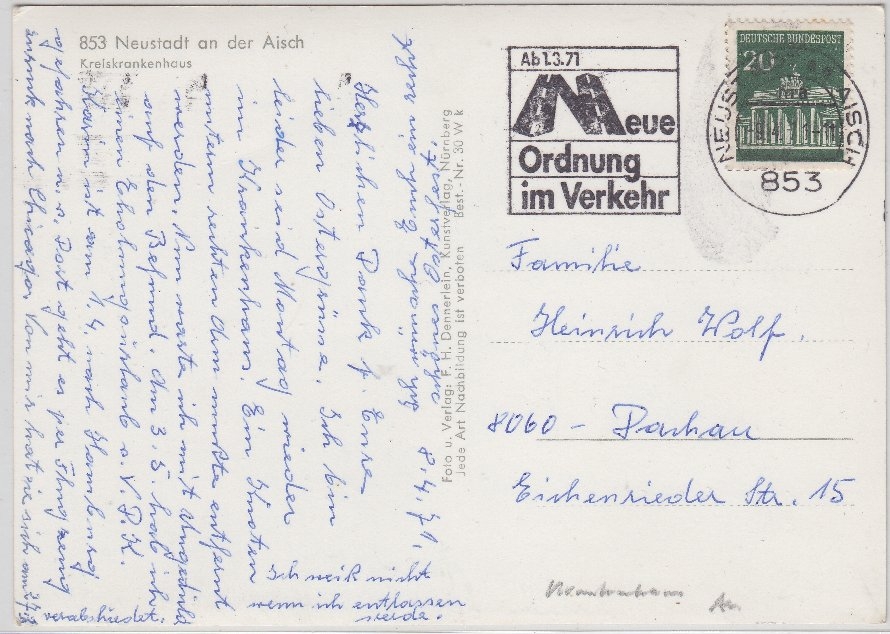 853 Neustadt an der Aisch
Kreiskrankenhaus
Ab 1.3.71
Neue
Ordnung
im Verkehr
DEUTSCHE BUNDESPOST
20
853
Familie
Heinrich Wolf.
8060 - Dachau
Eichenrieder Str. 15
Foto u. Verlag: F. H. Dennerlein, Kunstverlag, Nürnberg
Jede Art Nachbildung ist verboten Best.-Nr. 30 W k
8.4.71.
Ich wünsche Euch ein
schönes Osterfest.
Herzlichen Dank f. Eure
lieben Ostergrüße. Ich bin
leider seid Montag wieder
im Krankenhaus. Ein Knoten
unterm rechten Arm mußte entfernt
werden. Nun warte ich mit Ungeduld
auf den Befund. Am 3.5. hab ich
einen Erholungsurlaub v. V.d.K.
ist am 1.4. nach Hamburg
gefahren m. Dort geht es per Flugzeug
zurück nach Chicago. Von mir hat sie sich
verabschiedet.
Ich weiß nicht
wenn ich entlassen
werde.